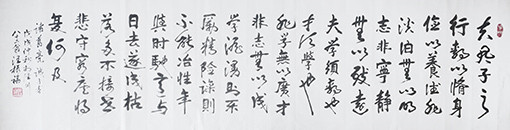 夫君子之
行靜以脩身
儉以養德非
淡泊無以明
志非寧靜
無以致遠
夫學須靜也
才須學也
非學無以廣才
非志無以成
學滔漫則不能
勵精險躁則
不能冶性年
與時馳意與
日去遂成枯
落多不接世
悲守窮廬將
復何及
諸葛亮誡子書